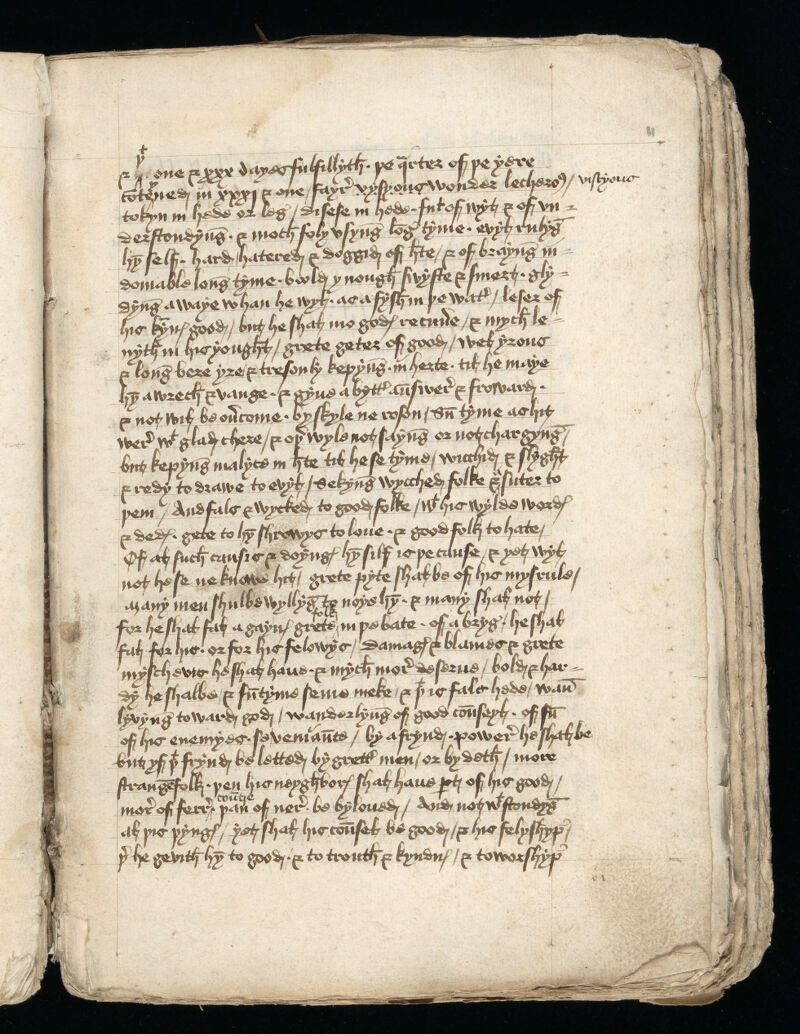 & þt one & xxx dayes fulfillyth · þe qrter off þe yere
cōteyned in xxxj & one / fayr vyssyous wonder lecheros / vicyous
tokyn in hede or leg / disese in hede · of wyt & of vn =
derstondyng · & moch foly vsyng long tyme · evyll rulyg
hȳ self · hard hatered & doggid off hte / & of brayng in =
domable long tyme · boold ynough swyfte & smert · gly =
dyng a waye whan he wyl · as a fysh in þe wat / leser of
his kyn good / but he shall mo god recure / & mych le =
nyth in his þought / grete geter of good / wel yrous
& long bere yre & tresonly kepyng · in herte · till he maye
hȳ a wrech & vange · & gyue a bytt answer & froward ·
& not will be ouercome · by skyle ne reson / sū tyme as hit
wer wt glad chere / & oþ wyle not sayng or not chargyng /
but kepyng malyce in hte till he se tyme / wicchid & slyght
& redy to drawe to evyll / sekyng wycched folke & suter to
þem / And fals & wycked to good folke / wt his wylde word
& ded · gete to hȳ shrowys to loue · & good folk to hate /
Of all such causis & doyng hȳ silf is þe cause / & yet wyll
not he se ne knowe hit / grete pyte shal be of his mysrule /
Many men shul be wyllyg to noye hȳ · & many shall not /
for he shal fall a gayn grete folk in þe bate · of a bryg / he shal
fall for his · or for his felowys / damag & blames & grete
myschevis he shall haue · & mych mor deserue / bold & har =
dy he shal be / & sūtyme seme meke / & þt is fals hede / wan
lyvyng toward god / wanderlyng of good cōnseyl · of sū
of his enemyes · seveniaūte / by a frynd · power he shall be
but yf þt frynd be letted by grett men / or by deth / more
strange folk · þen his neyghbors shall haue pt of his good /
mor of ferr cōntre þan of ner · be byloued / And not wtstondyg
all þis þyng / yet shall his cōnsell be good / & his felyshyp /
þt he gevith hȳ to good · & to trouth & kyndn / & to worshyp